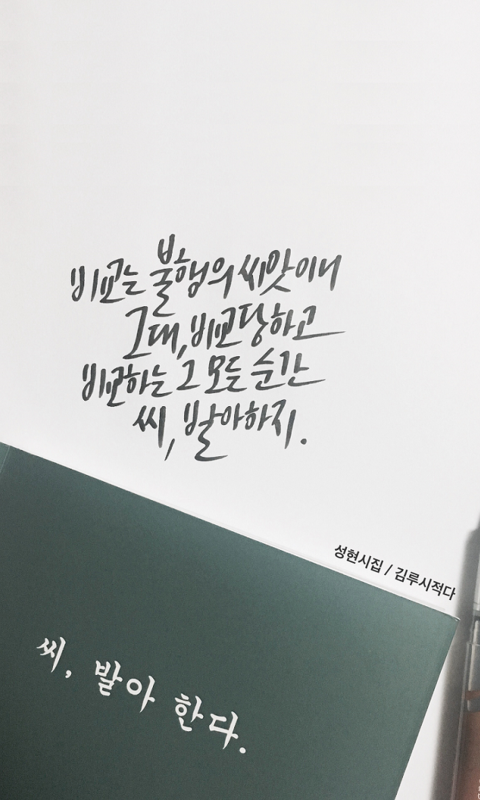 비교는 불행의 씨앗이니
그대, 비교당하고
비교하는 그 모든 순간
씨, 발아하지.
성현시집 / 김루시적다
씨, 발아 한다.